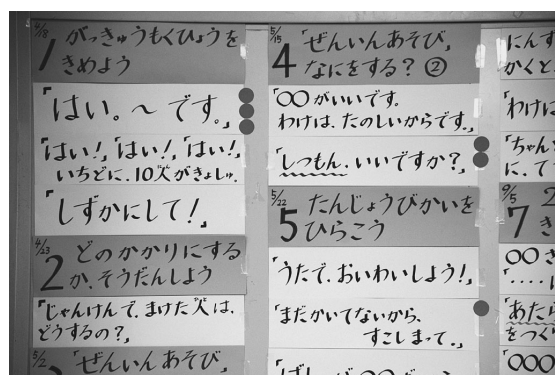 4/18
1 がっきゅうもくひょうを
きめよう
「はい。～です。」
「はい!」「はい!」「はい!」
いちどに、10人がきょしゅ。
「しずかにして!」
4/23
2 どのかかりにする
か、そうだんしよう
「じゃんけんで、まけた人は、
どうするの?」
5/2
「ぜんいんあそび」
5/15
4 「ぜんいんあそび」
なにをする? ②
「○○がいいです。
わけは、たのしいからです。」
「しつもん、いいですか?」
5/22
5 たんじょうびかいを
ひらこう
「うたで、おいわいしよう!」
「まだかいてないから、
すこしまって。」
にんす
かくと
「わけは
「ちゃん
に、て
9/5
7
○○さ
「‥‥
「あたら
をつく
「○○○